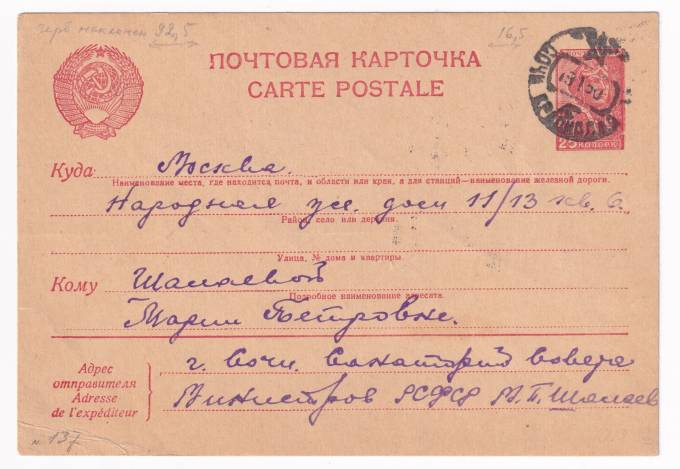 герб наклонен 92,5
16,5
ПОЧТОВАЯ КАРТОЧКА
CARTE POSTALE
СОЧИ
13 1 50
25 КОПЕЕК
Куда Москва.
Наименование места, где находится почта, и области или края, а для станций—наименование железной дороги.
Народная ул. дом 11/13 кв. 6.
Район, село или деревня.
Улица, № дома и квартиры.
Кому Шамаевой
Подробное наименование адресата.
Марии Петровне.
Адрес
отправителя
Adresse
de l'expéditeur
г. Сочи. Санаторий Совета
Министров РСФСР М.П. Шамаев
N. 137